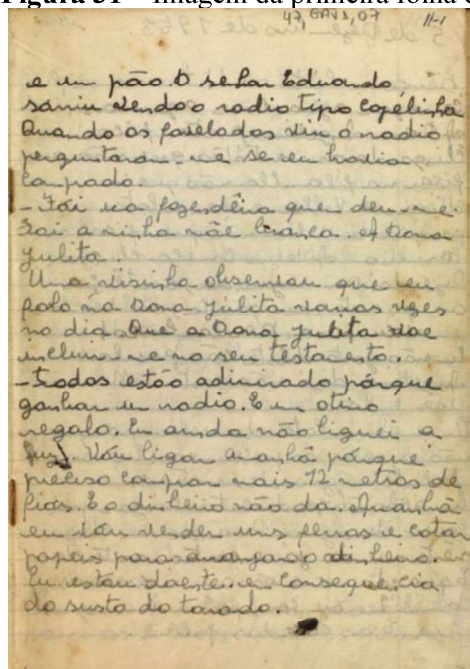 Imagem da primeira folha
47, GAV2, 07
e um pão. O senhor Eduardo
sorriu vendo o radio tipo capélinha
Quando os favelados viu o radio
perguntaram-me se eu havia
comprado.
- Foi
Foi a minha mãe branca. A Dona
Julita.
Uma visinha observou que eu
falo na Dona Julita varias vezes
no dia Que a Dona Julita vae
incluir-me no seu testamento.
- Todos estão adimirado pórque
ganhar um radio. E um otimo
regalo. Eu ainda não liguei a
luz. Vou ligar amanhã pórque
preciso comprar mais 12 metros de
fios. E o dinheiro não da. Amanhã
eu vou vender uns ferros e catar
papeis para arranjar o dinheiro.
Eu estou doente. em consequencia
do susto do tarado.